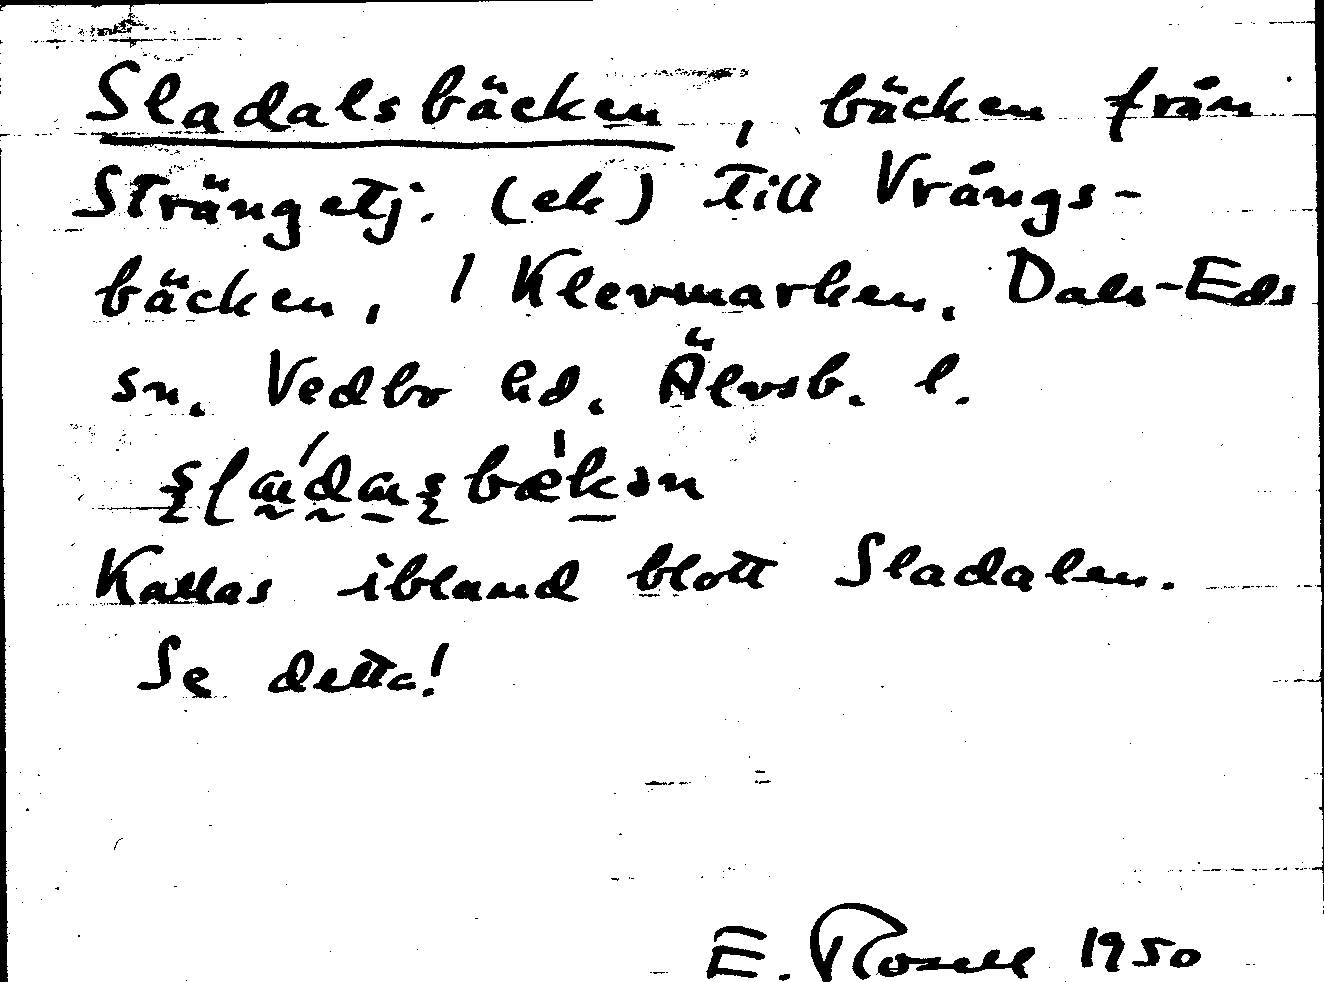 Sladalsbäcken, bäcken från
Strängetj. (ek) till Vrångs-
bäcken, 1 Klevmarken, Dals-Eds
sn. Vedbo hd. Älvsb. l.
Kallas ibland blott Sladalen.
Se detta!
E. Rosell 1950